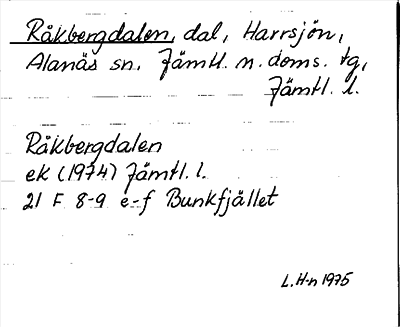 Råkbergdalen, dal, Harrsjön,
Alanäs sn. Jämtl. n. doms. tg,
Jämtl. l.
Råkbergdalen
ek (1974) Jämtl. l.
21 F 8-9 e-f Bunkfjället
L. H-n 1975